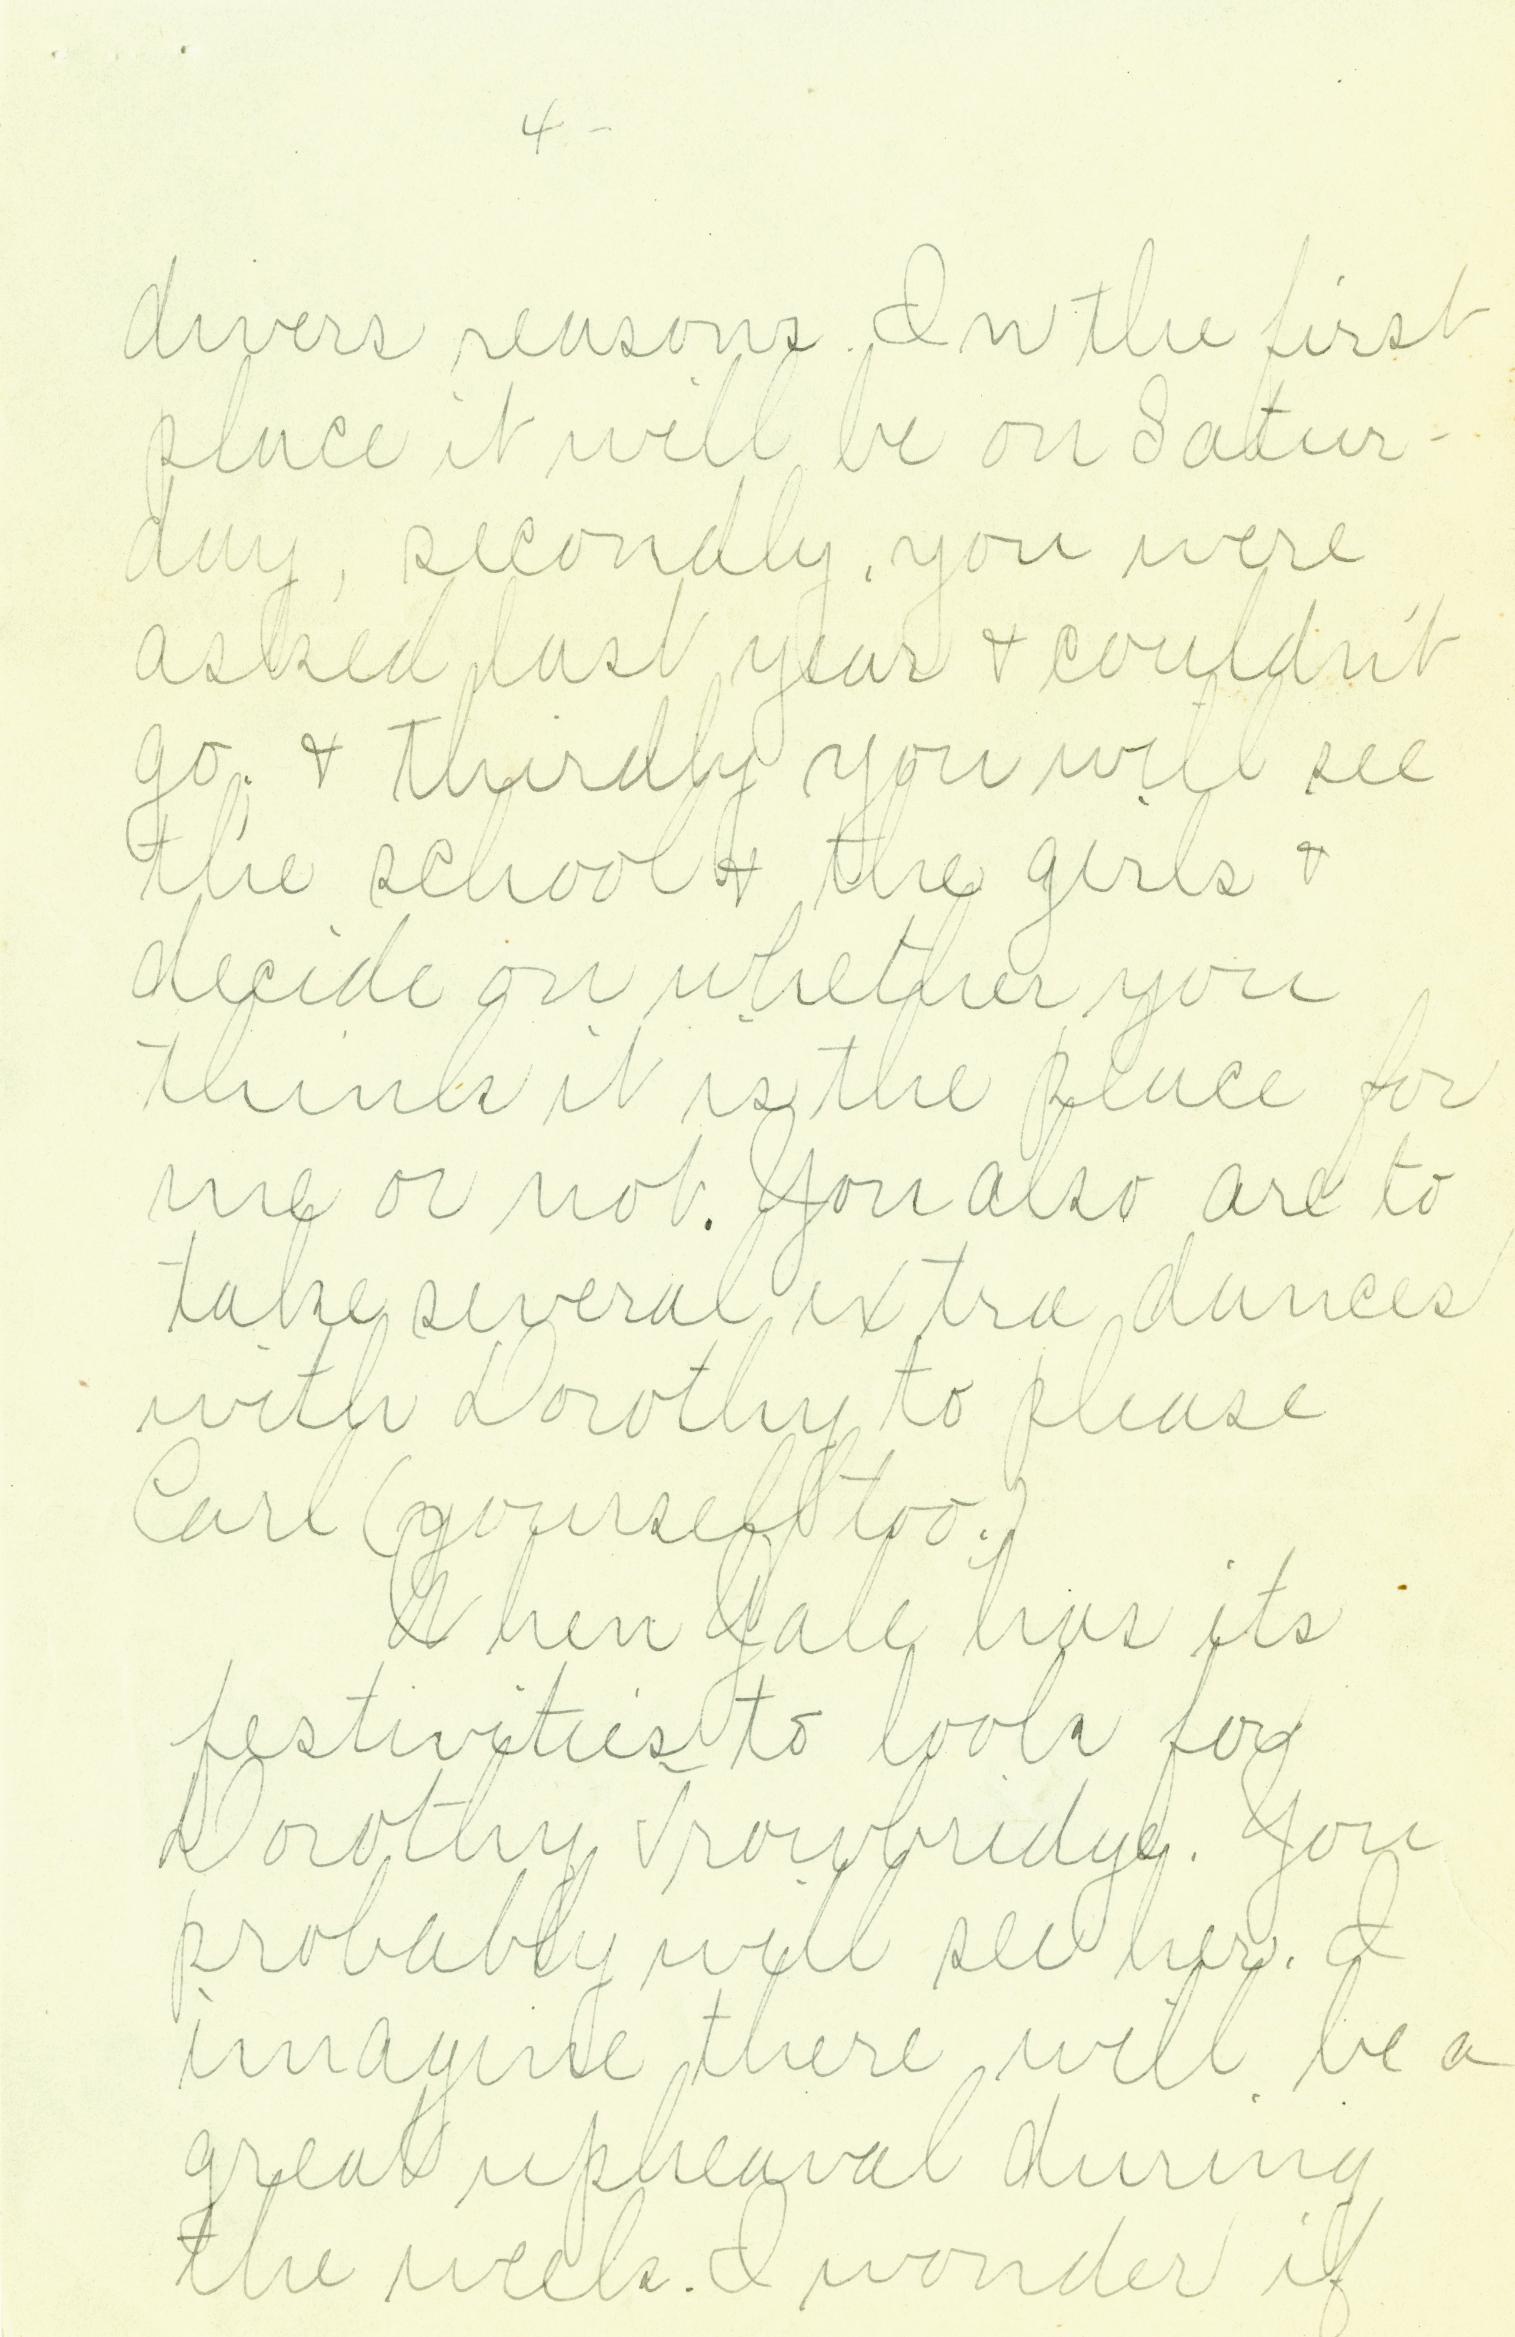 4 -
divers reasons. In the first
place it will be on Satur-
day, secondly, you were
asked last year & couldn't
go, & thirdly you will see
the school & the girls &
decide on whether you
think it is the place for
me or not. You also are to
take several extra dances
with Dorothy to please
Carl (yourself too.)
When Yale has its
festivities to look for
Dorothy Trowbridge. You
probably will see her. I
imagine there will be a
great upheaval during
the week. I wonder if